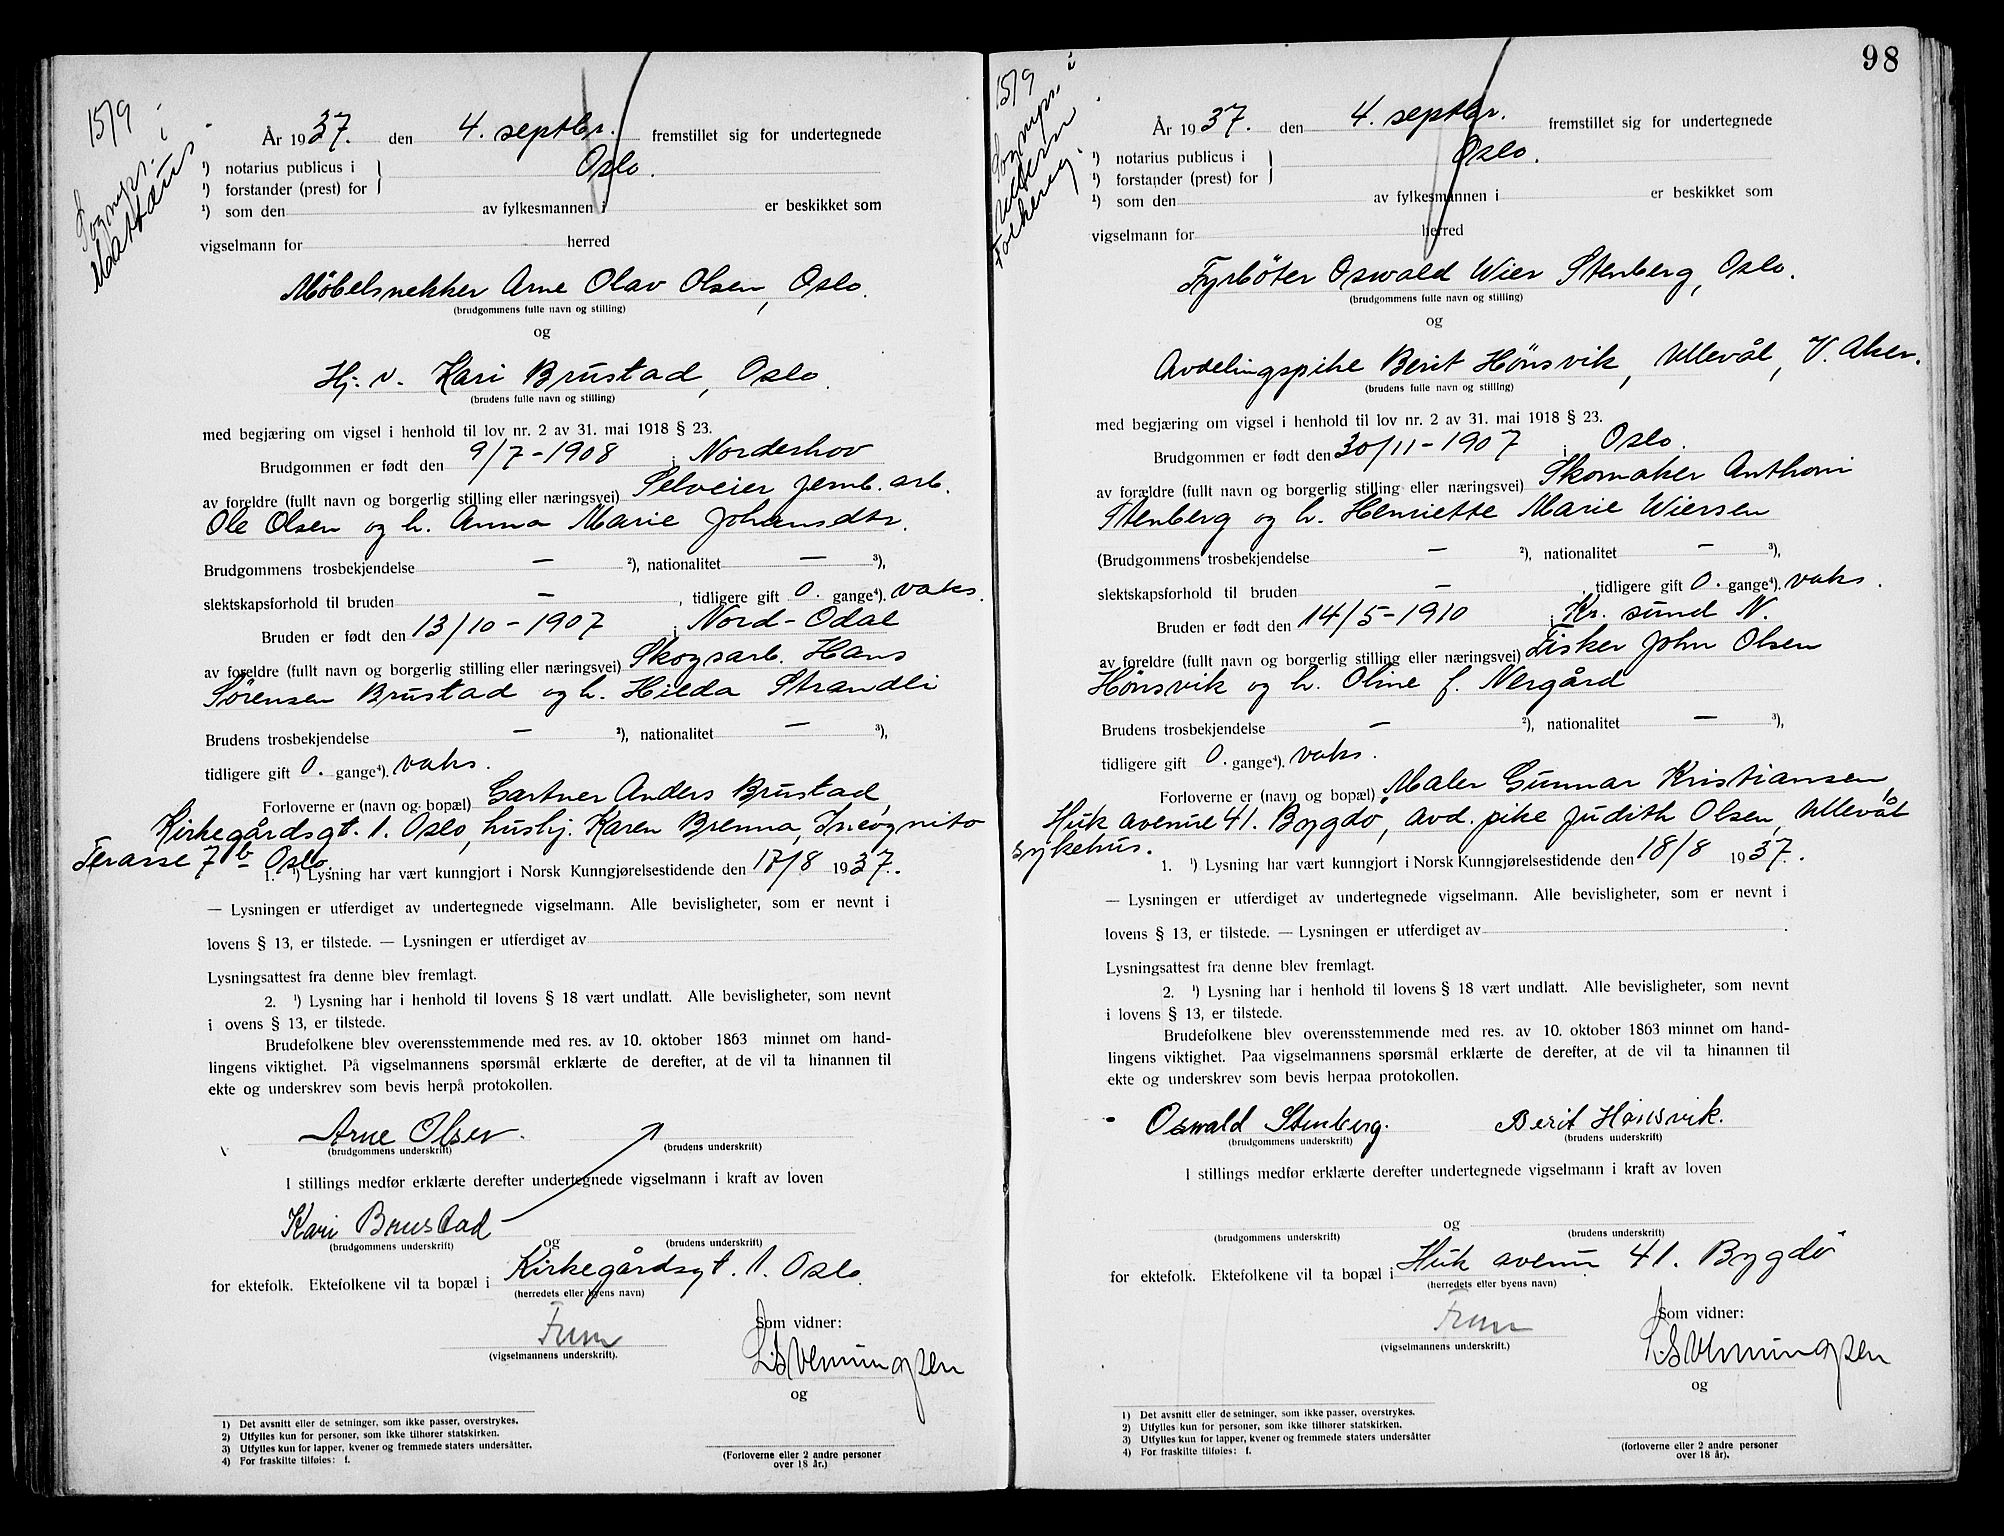 15/9
Sognepr. i
Matteus
År 1937. den 4. septbr. fremstillet sig for undertegnede
¹) notarius publicus i } Oslo.
¹) forstander (prest) for
¹) som den av fylkesmannen i er beskikket som
vigselmann for herred
Møbelsnekker Arne Olav Olsen, Oslo.
(brudgommens fulle navn og stilling)
og
Hj. v. Kari Brustad, Oslo.
(brudens fulle navn og stilling)
med begjæring om vigsel i henhold til lov nr. 2 av 31. mai 1918 § 23.
Brudgommen er født den 9/7-1908 i Norderhov
av foreldre (fullt navn og borgerlig stilling eller næringsvei) Selveier jernb. arb.
Ole Olsen og h. Anna Marie Johansdtr.
Brudgommens trosbekjendelse — ²), nationalitet — ³),
slektskapsforhold til bruden — , tidligere gift 0. gange⁴). vaks.
Bruden er født den 13/10-1907 i Nord-Odal
av foreldre (fullt navn og borgerlig stilling eller næringsvei) Skogsarb. Hans
Sörensen Brustad og h. Hilda Strandli
Brudens trosbekjendelse — ²), nationalitet — ³),
tidligere gift 0. gange⁴). vaks.
Forloverne er (navn og bopæl) Gartner Anders Brustad,
Kirkegårdsgt. 1. Oslo, hushj. Karen Brenna, Incognito
Terasse 7 b Oslo.
1. ¹) Lysning har vært kunngjort i Norsk Kunngjørelsestidende den 17/8 1937.
— Lysningen er utferdiget av undertegnede vigselmann. Alle bevisligheter, som er nevnt i
lovens § 13, er tilstede. — Lysningen er utferdiget av
Lysningsattest fra denne blev fremlagt.
2. ¹) Lysning har i henhold til lovens § 18 vært undlatt. Alle bevisligheter, som nevnt
i ovens § 13, er tilstede.
Brudefolkene blev overensstemmende med res. av 10. oktober 1863 minnet om hand-
lingens viktighet. På vigselmannens spørsmål erklærte de derefter, at de vil ta hinannen til
ekte og underskrev som bevis herpå protokollen.
Arne Olsen.
(brudgommens underskrift) (brudens underskrift)
I stillings medfør erklærte derefter undertegnede vigselmann i kraft av loven
Kari Brustad
(brudgommens underskrift) og (brudens underskrift)
for ektefolk. Ektefolkene vil ta bopæl i Kirkegårdsgt. 1. Oslo.
(herredets eller byens navn)
Som vidner:
(vigselmannens underskrift).
og
1) Det avsnitt eller de setninger, som ikke passer, overstrykes.
2) Utfylles kun for personer, som ikke tilhører statskirken.
3) Utfylles kun for lapper, kvener og fremmede staters undersåtter.
4) For fraskilte tilføies: f.
(Forloverne eller 2 andre personer
over 18 år.)
98
15/9
Sognepr. i
Folkereg.
År 1937. den 4. septbr. fremstillet sig for undertegnede
¹) notarius publicus i } Oslo.
¹) forstander (prest) for
¹) som den av fylkesmannen i er beskikket som
vigselmann for herred
Fyrböter Oswald Wier Stenberg, Oslo.
(brudgommens fulle navn og stilling)
og
Avdelingspike Berit Hönsvik, Ullevål, V. Aker.
(brudens fulle navn og stilling)
med begjæring om vigsel i henhold til lov nr. 2 av 31. mai 1918 § 23.
Brudgommen er født den 30/11-1907 i Oslo.
av forældre (fullt navn og borgerlig stilling eller næringsvei) Skomaker Anthoni
Stenberg og h. Henriette Marie Wiersen
(Brudgommens trosbekjendelse — ²), nationalitet — ³),
slektskapsforhold til bruden — , tidligere gift 0. gange⁴). vaks.
Bruden er født den 14/5-1910 i Kr. sund N.
av foreldre (fullt navn og borgerlig stilling eller næringsvei) Fisker John Olsen
Hönsvik og h. Oline f. Nergård
Brudens trosbekjendelse — ²), nationalitet — ³),
tidligere gift 0. gange⁴). vaks.
Forloverne er (navn og bopæl) Maler Gunnar Kristiansen,
Huk avenue 41. Bygdö, avd. pike Judith Olsen, Ullevål
sykehus.
1. ¹) Lysning har vært kunngjort i Norsk Kunngjørelsestidende den 18/8 1937.
— Lysningen er utferdiget av undertegnede vigselmann. Alle bevisligheter, som er nevnt i
lovens § 13, er tilstede. — Lysningen er utferdiget av
Lysningsattest fra denne blev fremlagt.
2. ¹) Lysning har i henhold til lovens § 18 vært undlatt. Alle bevisligheter, som nevnt
i lovens § 13, er tilstede.
Brudefolkene blev overensstemmende med res. av 10. oktober 1863 minnet om hand-
lingens viktighet. Paa vigselmannens spørsmål erklærte de derefter, at de vil ta hinannen til
ekte og underskrev som bevis herpaa protokollen.
Oswald Stenberg. Berit Hönsvik.
(brudgommens underskrift) (brudens underskrift)
I stillings medfør erklærte derefter undertegnede vigselmann i kraft av loven
og
(brudgommens underskrift) (brudens underskrift)
for ektefolk. Ektefolkene vil ta bopæl i Huk avenue 41. Bygdö
(herredets eller byens navn)
Som vidner:
(vigselmannens underskrift.)
og
1) Det avsnitt eller de setninger, som ikke passer, overstrykes.
2) Utfylles kun for personer, som ikke tilhører statskirken.
3) Utfylles kun for lapper, kvener og fremmede staters undersåtter
4) For fraskilte tilføies: f.
(forloverne eller 2 andre personer
over 18 år).